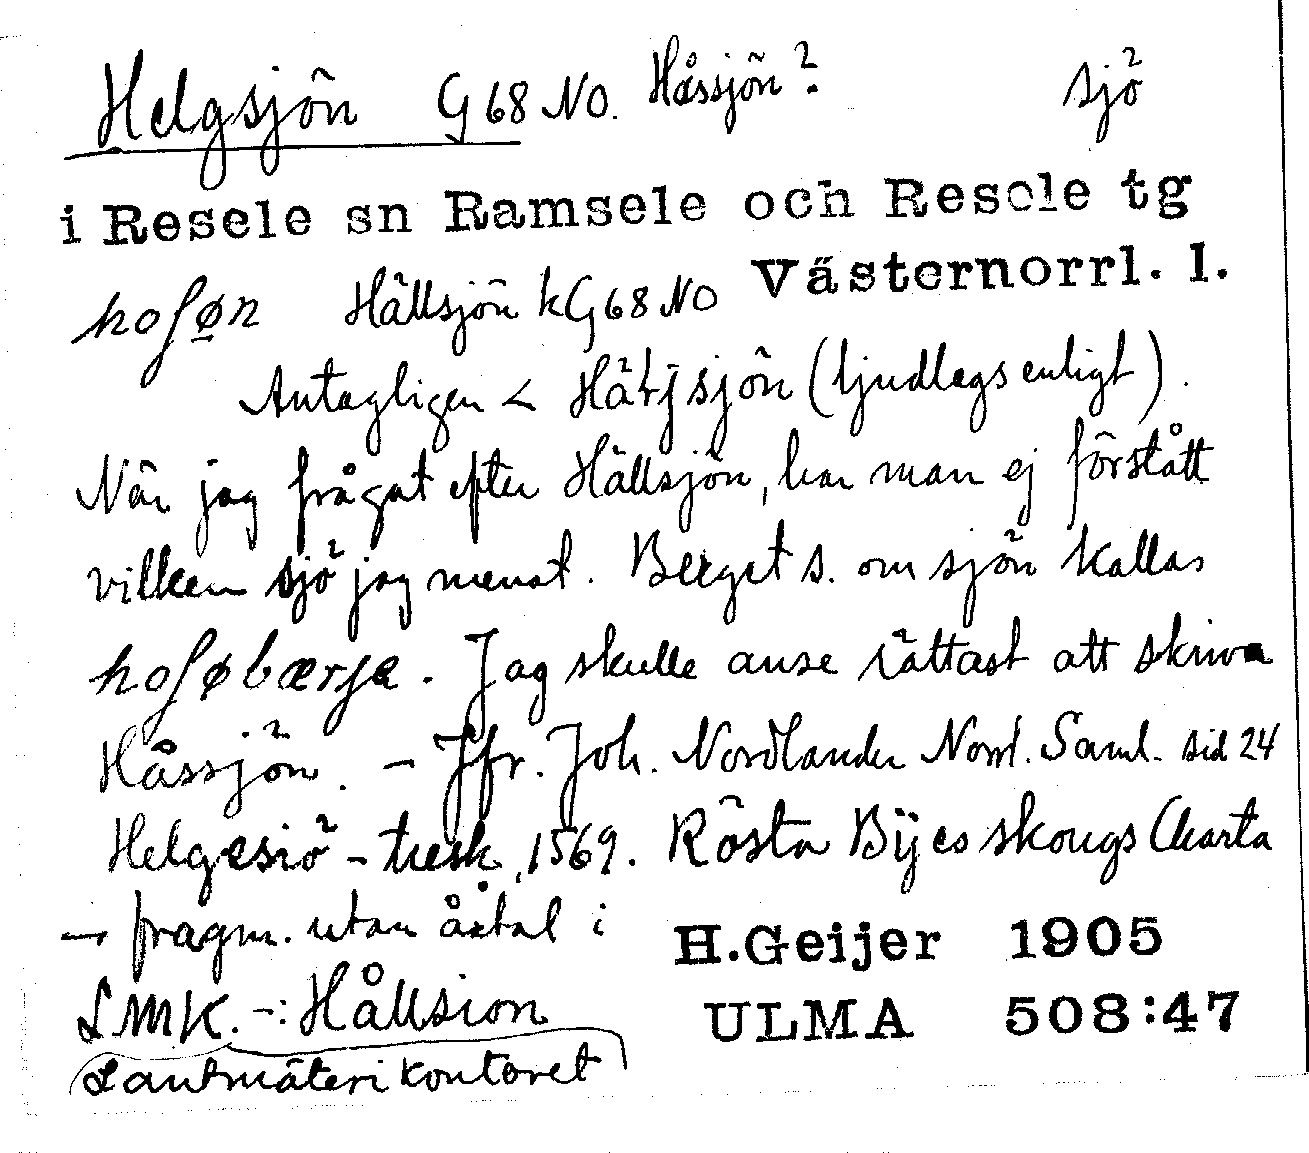 Helgsjön G68 NO. Håssjön? sjö
i Resele sn Ramsele och Resele tg
Västernorrl. l.
hoſøn Hällsjön kG68 NO
Antagligen < Hätjsjön (ljudlagsenligt).
När jag frågat efter Hällsjön, har man ej förstått
vilken sjö jag menat. Berget s. om sjön kallas
hoſøbærſa. Jag skulle anse rättast att skriva
Håssjön. – Jfr. Joh. Nordlander Norrl. Saml. sid 24
Helgesiö – tresk, 1569. Rösta Bÿes skougs Charta
– fragm. utan årtal i
H. Geijer 1905
LMK. –: Hållsion
ULMA 508:47
Lantmäterikontoret